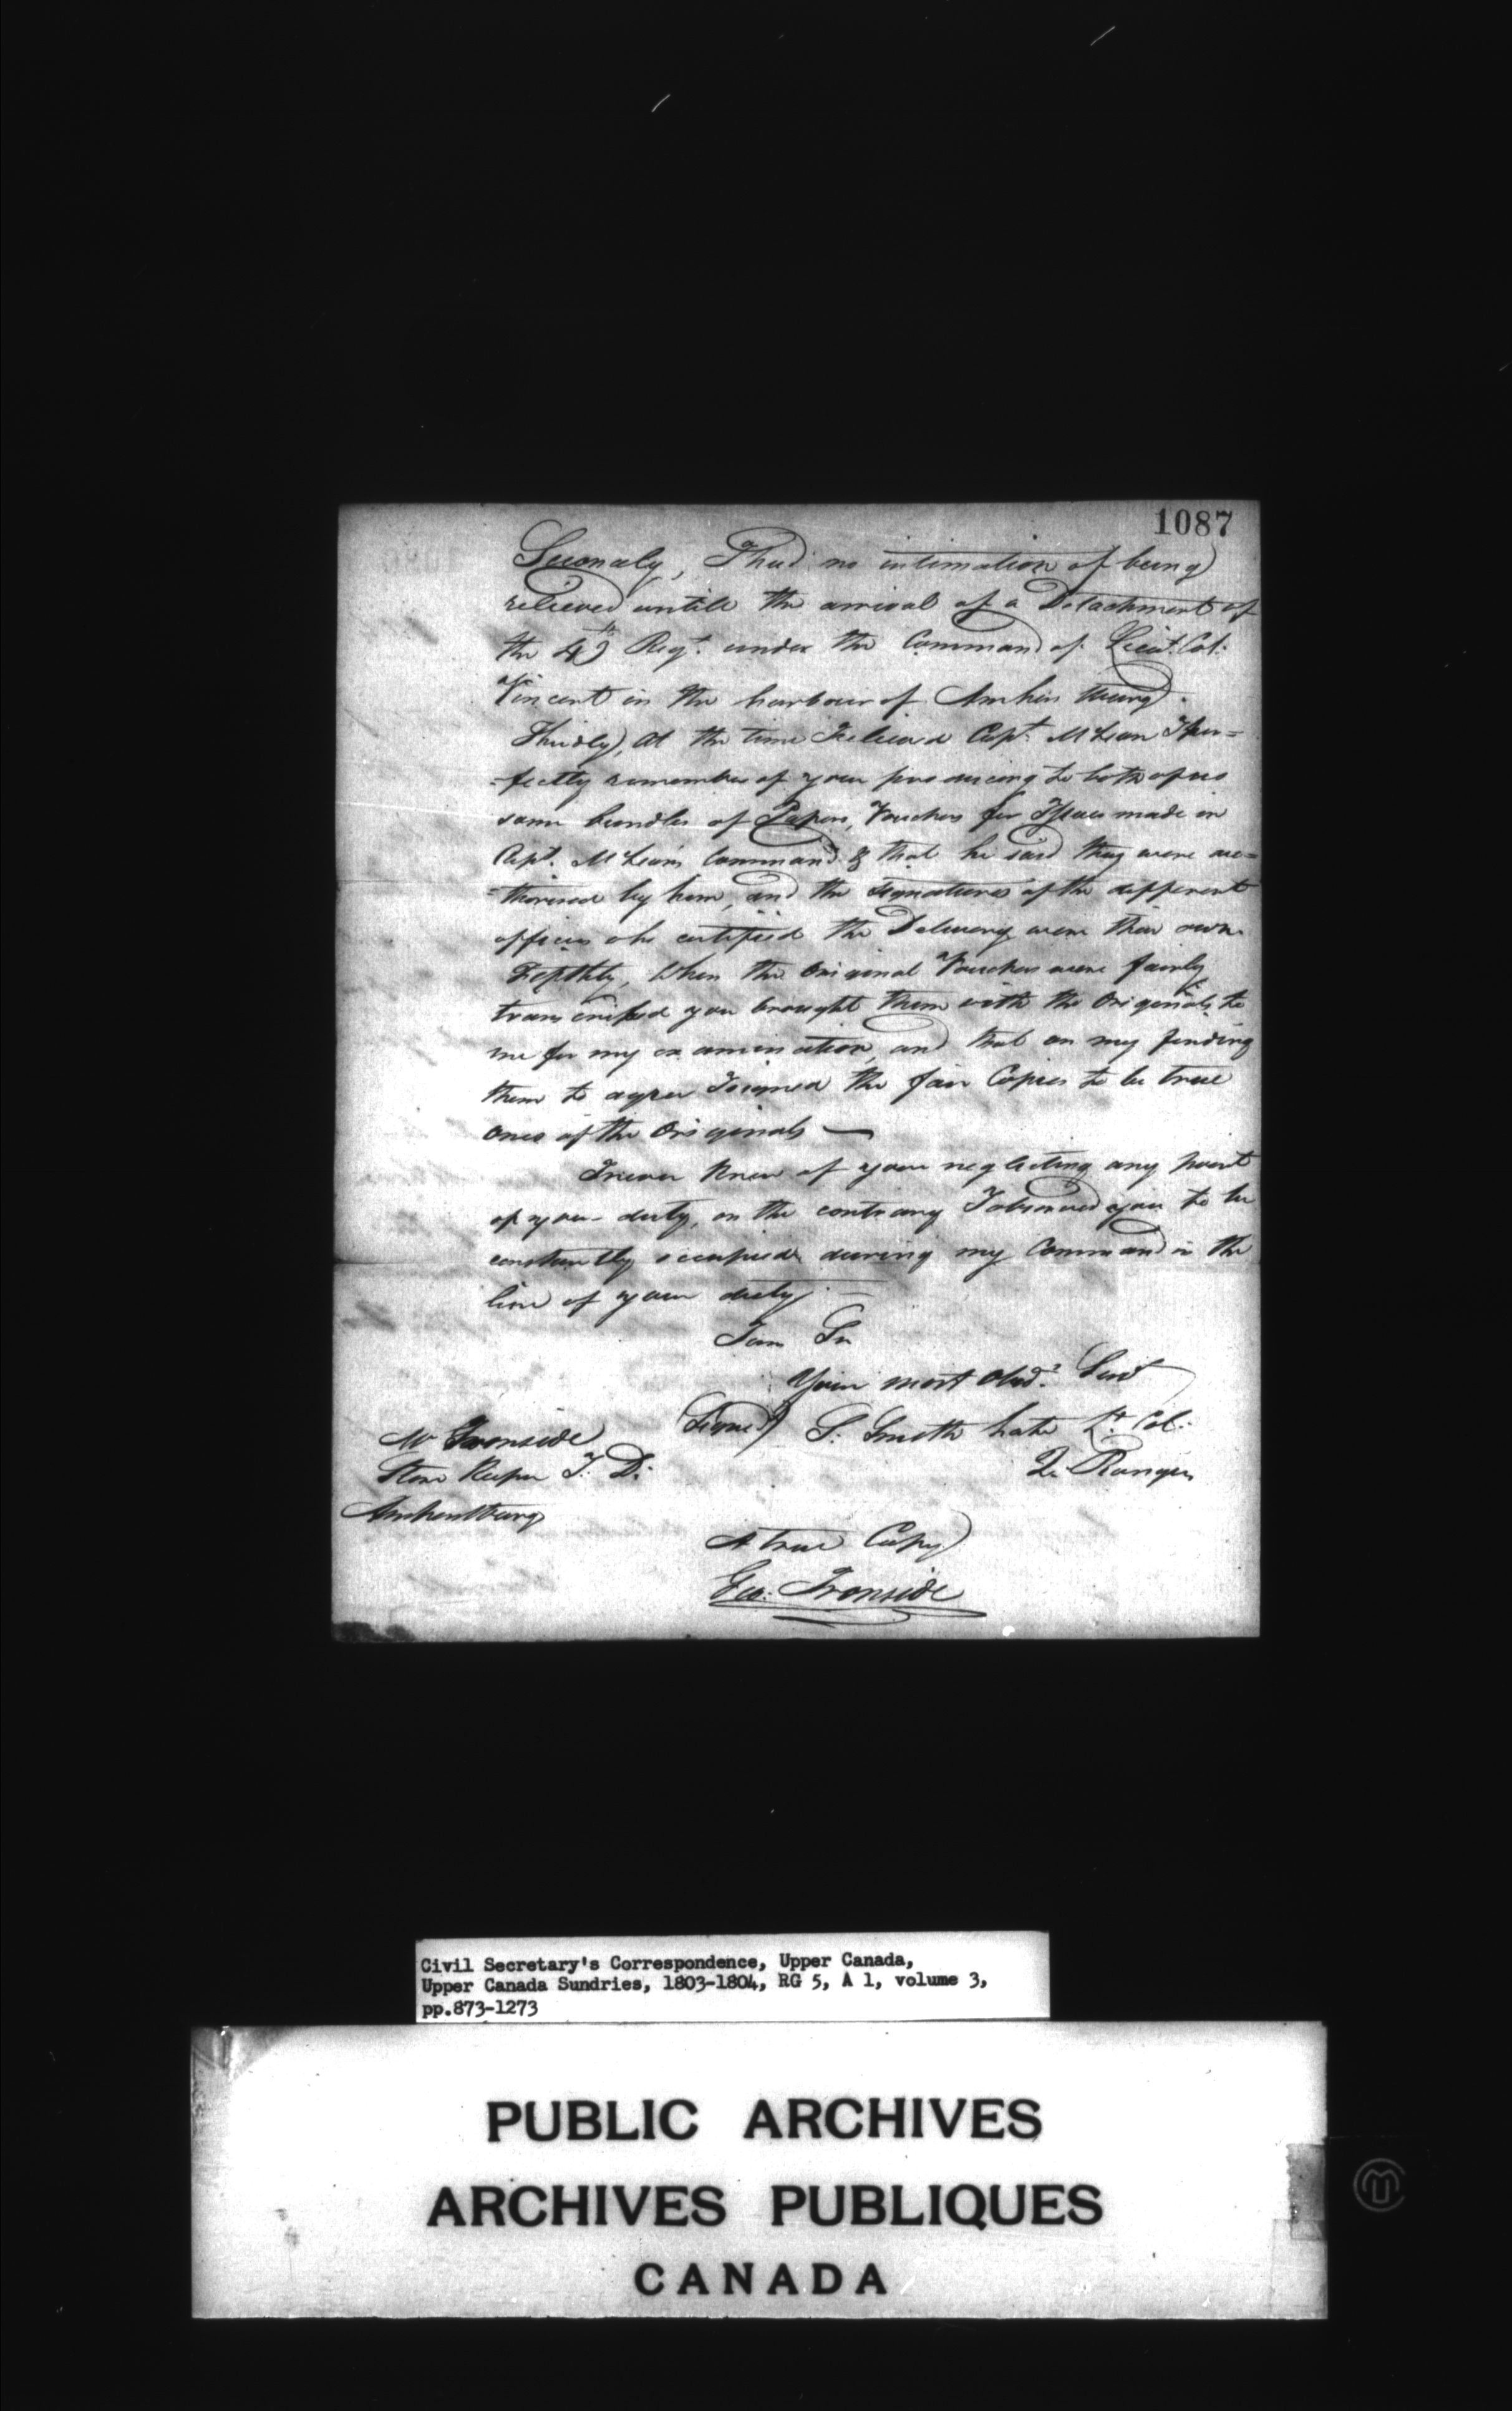 1087
Secondly, I had no intimation of being
relieved untill the arrival of a Detachment of
the 49th Regt. under the Command of Lieut. Col:
Vincent in the harbour of Amherstburg.
Thirdly, At the time I relieved Capt. McLean I per=
=fectly remember of your producing to both of us
some bundles of Papers, Vouchers for Issues made in
Capt. McLean's Command & that he said they were au=
=thorised by him, and the signatures of the different
officers who certified the Delivery were their own.
When the Original Vouchers were fairly
transcribed you brought them with the Originals to
me for my examination, and that on my finding
them to agree I signed the fair Copies to be true
ones of the Originals —
I never knew of your neglecting any part
of your duty, on the contrary I observed you to be
constantly occupied during my Command in the
line of your duty. —
I am Sir
Your most Obdt. Servt
(Signed) S: Smith Late Lt. Col:
Q. Rangers
Mr Ironside
Store Keeper I: D:
Amherstburg
A true Copy
Geo: Ironside
Civil Secretary's Correspondence, Upper Canada,
Upper Canada Sundries, 1803-1804, RG 5, A 1, volume 3,
pp.873-1273
PUBLIC ARCHIVES
ARCHIVES PUBLIQUES
CANADA